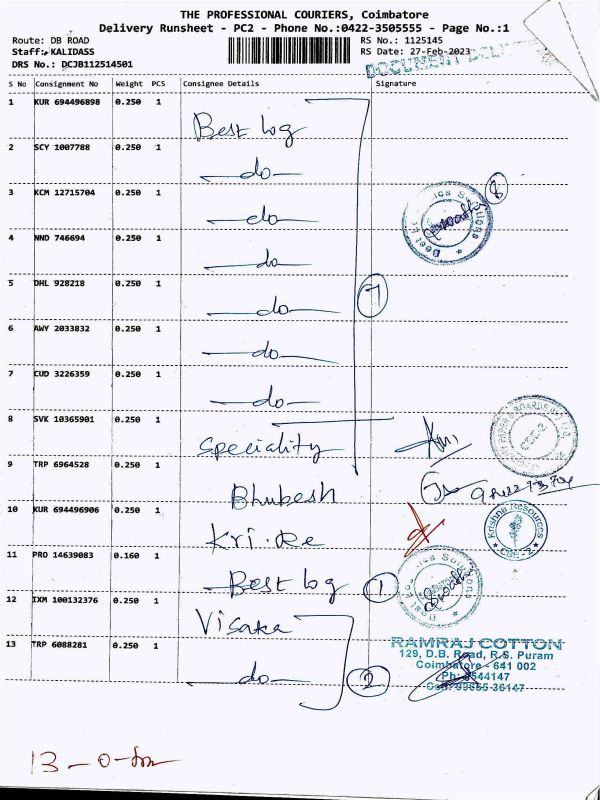 THE PROFESSIONAL COURIERS, Coimbatore
Delivery Runsheet - PC2 - Phone No.:0422-3505555 - Page No.:1
Route: DB ROAD
RS No.: 1125145
Staff: KALIDASS
RS Date: 27-Feb-2023
DRS No.: DCJB112514501
S No Consignment No Weight PCS Consignee Details Signature
1 KUR 694496898 0.250 1
Best log
2 SCY 1007788 0.250 1
do
3 KCM 12715704 0.250 1
do
8
4 NND 746694 0.250 1
do
5 DHL 928218 0.250 1
do
7
6 AWY 2033832 0.250 1
do
7 CUD 3226359 0.250 1
do
8 SVK 10365901 0.250 1
Speciality
9 TRP 6964528 0.250 1
Bhubesh
10 KUR 694496906 0.250 1
Kri. Re
Krishna Resources
CBE-2
11 PRO 14639083 0.160 1
Best log
1
12 IXM 100132376 0.250 1
Visaka
13 TRP 6088281 0.250 1
do
2
RAMRAJ COTTON
129, D.B. Road, R.S. Puram
Coimbatore - 641 002